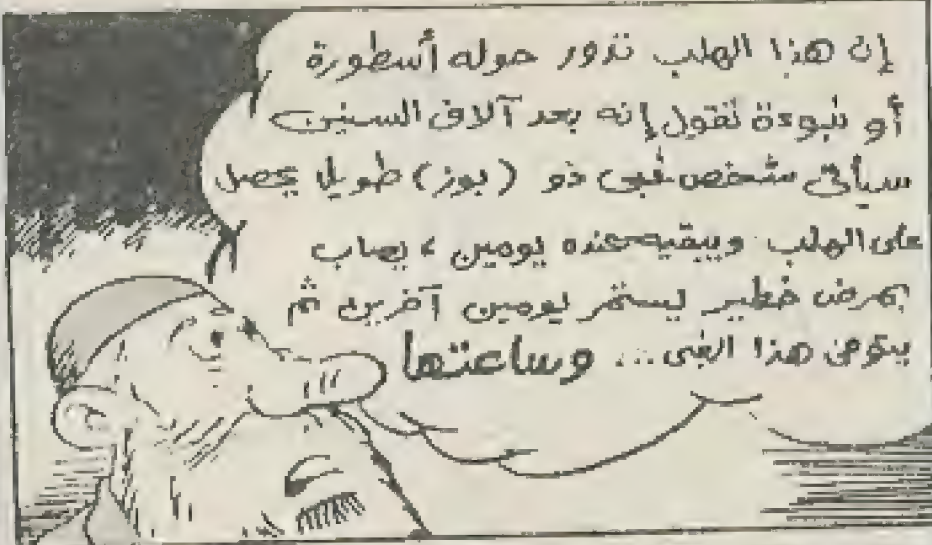 إن هذا الهلب تدور حوله أسطورة
أو نبوءة تقول إنه بعد آلاف السنين
سيأتى شخص غبى ذو (بوز) طويل يحصل
على الهلب ويبقيه عنده يومين ، يصاب
بمرض خطير يستمر يومين آخرين ثم
يتوفى هذا الغبى... وساعتها